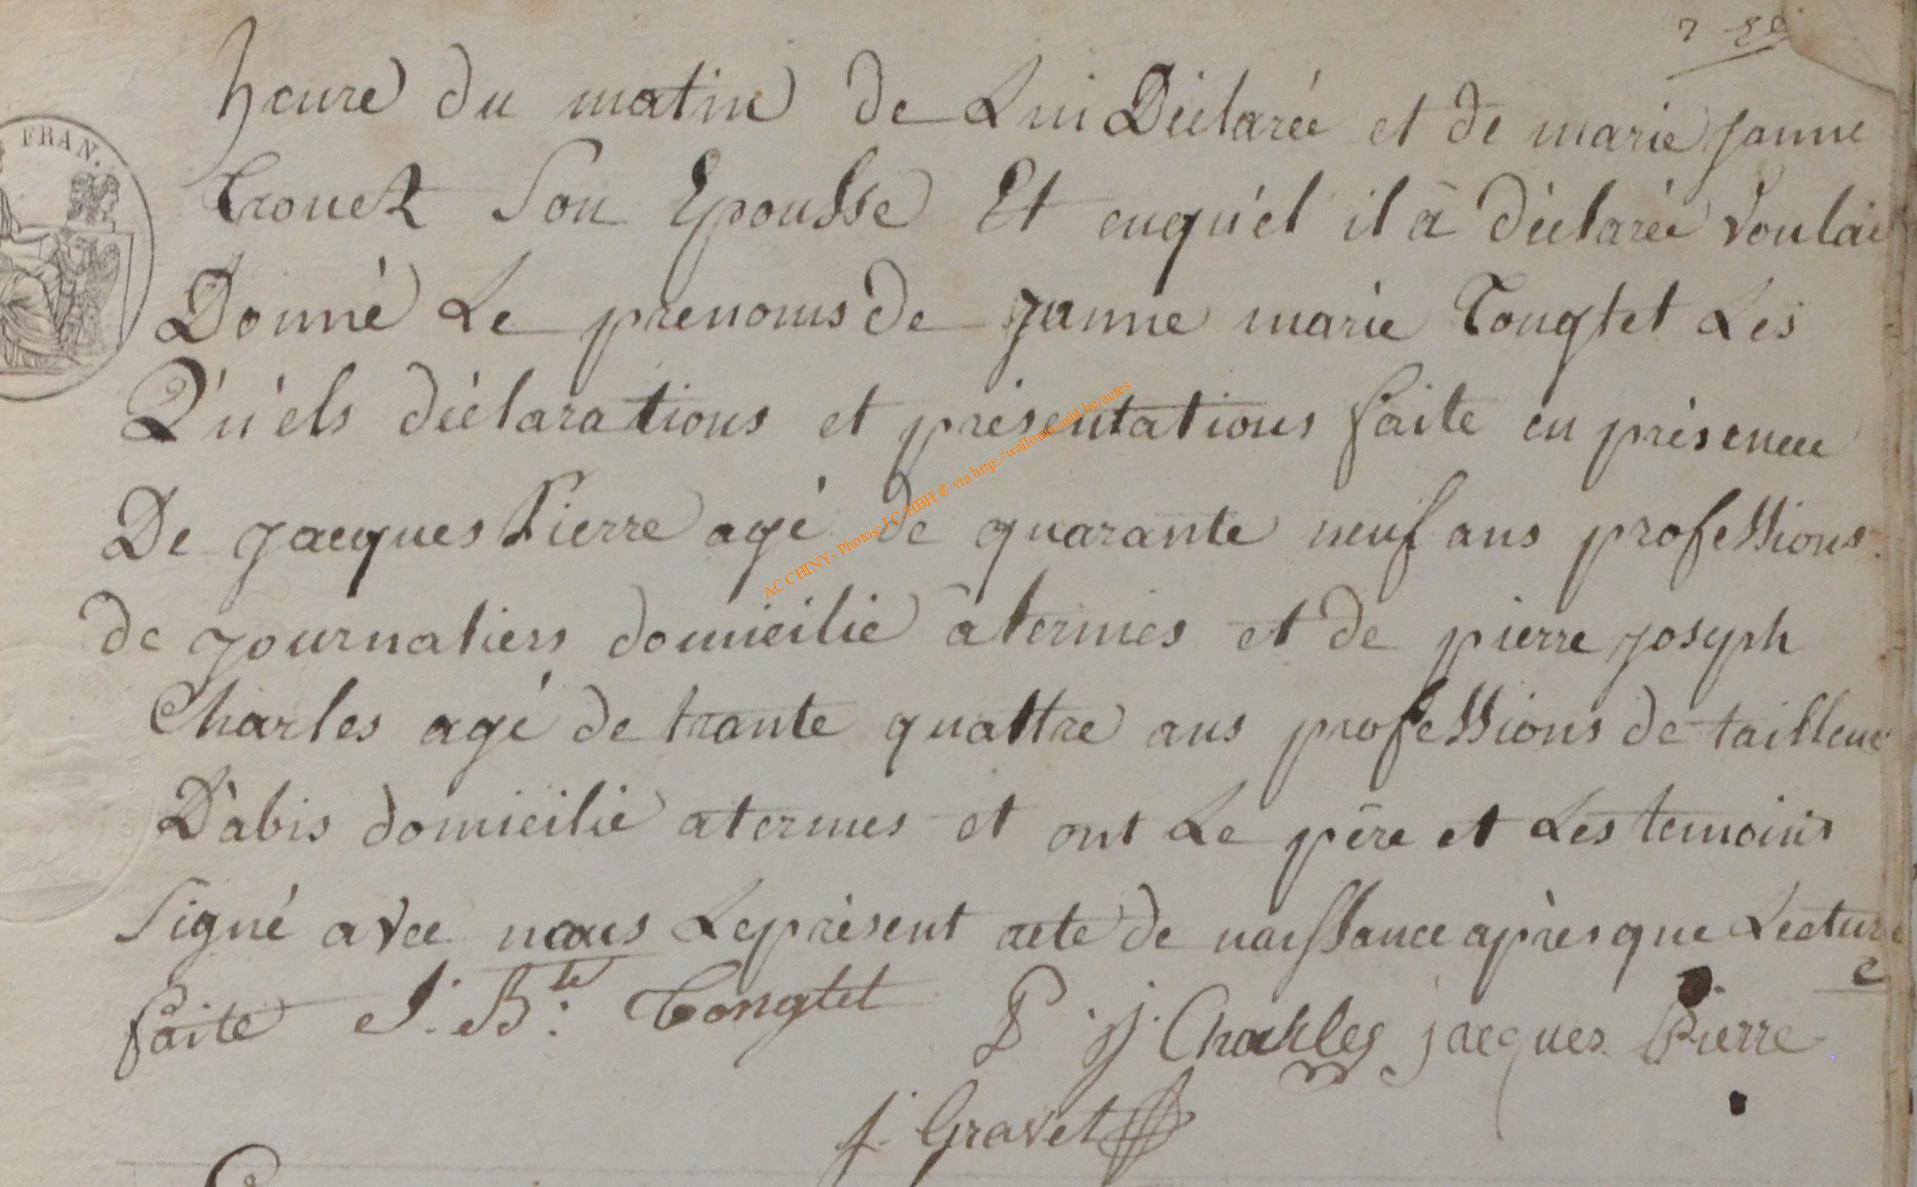 FRAN.
heure du matin de Lui Déclarée et de marie janne
Trouet Son Epousse Et enquél il à déclarée voulai
Donné Le prenoms de janne marie Tongtet Les
Quéls déclarations et présentations faite en présence
De jacques Pierre agé de quarante neuf ans professions
de journaliers domicilié à termes et de pierre joseph
Charles agé de trante quattre ans professions de tailleur
D'abis domicilié a termes et ont Le père et Les temoins
Signé avec nous Le présent acte de naissance après que Lecture
faite J. Bte: Tongtet P. j. Charles jacques Pierre
j. Gravet
AC CHINY - Photos J.C. HBH ® via http://wallonia-asbl.be/actes